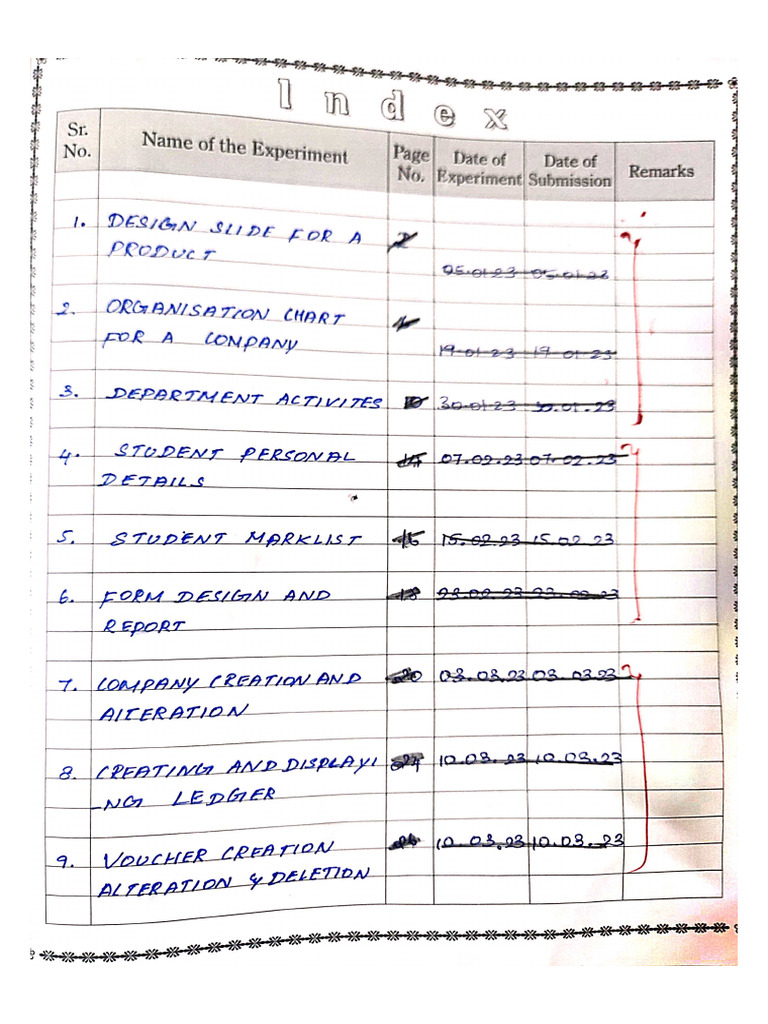 Index
Sr. No. Name of the Experiment Page No. Date of Experiment Date of Submission Remarks
1. DESIGN SLIDE FOR A
PRODUCT
05.01.23 05.01.23
2. ORGANISATION CHART
FOR A COMPANY
19.01.23 19.01.23
3. DEPARTMENT ACTIVITES 30.01.23 30.01.23
4. STUDENT PERSONAL 07.02.23 07.02.23
DETAILS
5. STUDENT MARKLIST 15.02.23 15.02.23
6. FORM DESIGN AND 23.02.23 23.02.23
REPORT
7. COMPANY CREATION AND 03.03.23 03.03.23
AlTERATION
8. CREATING AND DISPLAYI 10.03.23 10.03.23
-NG LEDGER
9. VOUCHER CREATION 10.03.23 10.03.23
AlTERATION & DELETION